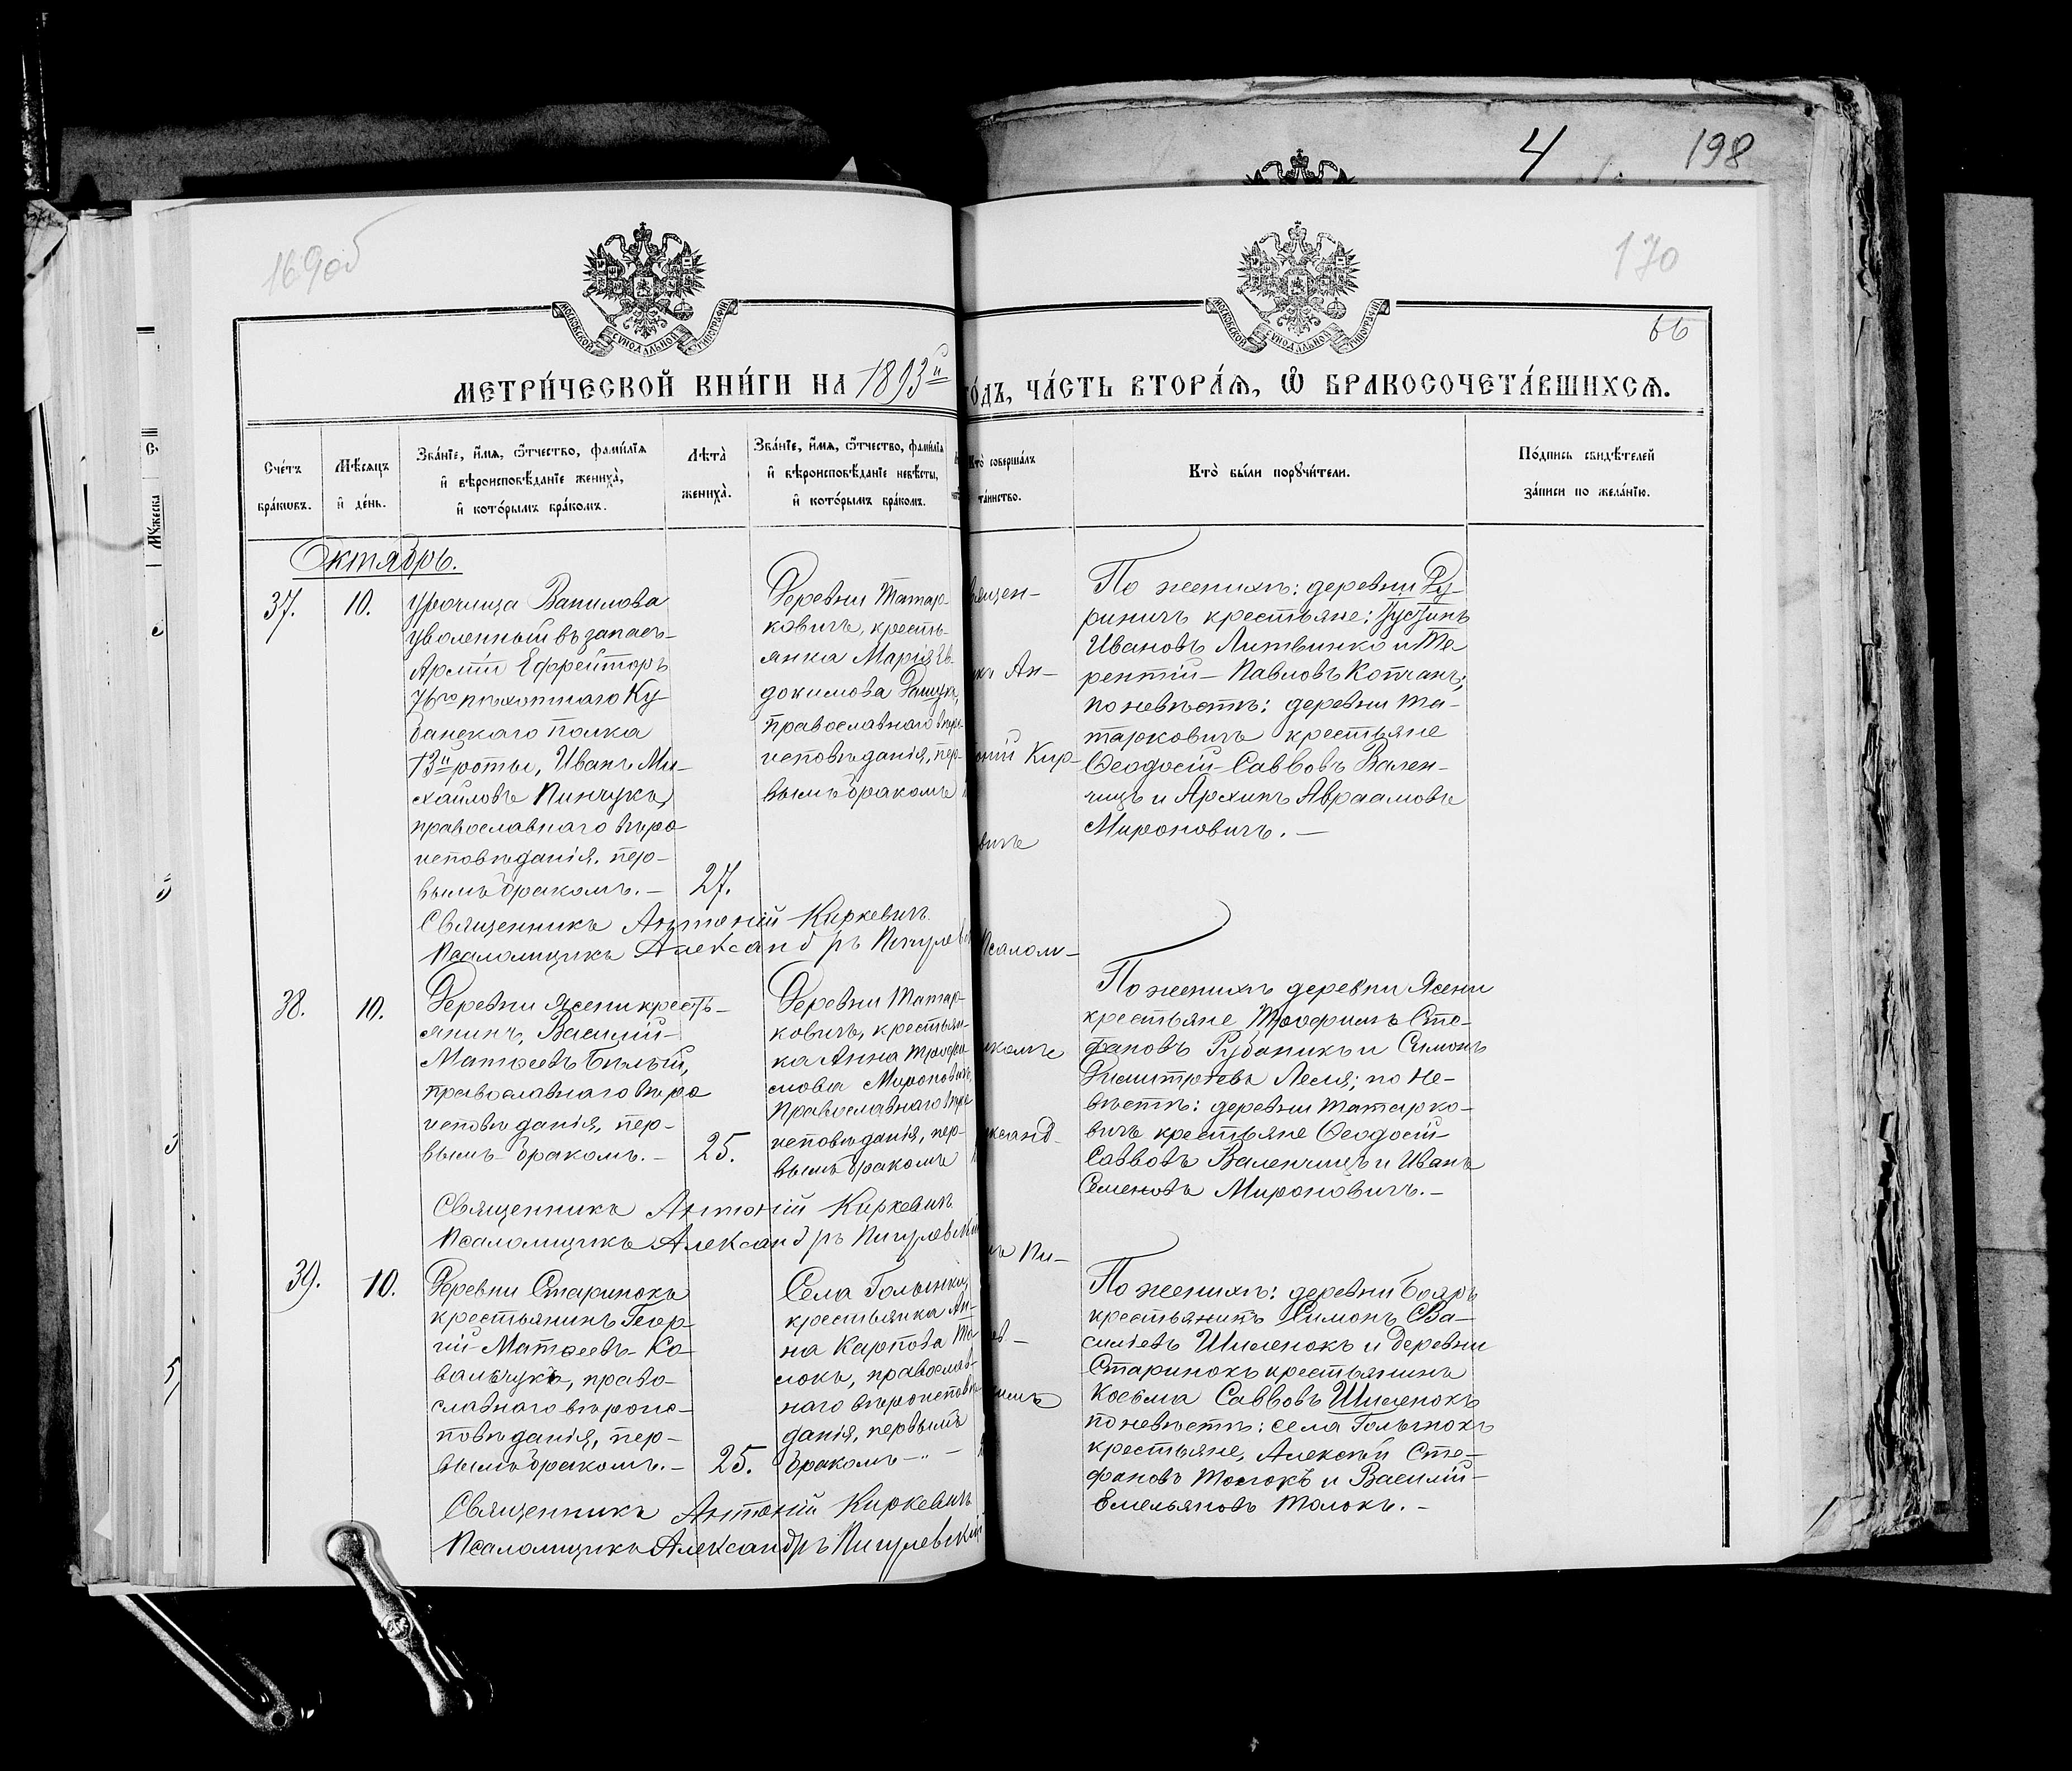 4 198
169об
170
66
МОСКОВСКОЙ СѴНОДАЛЬНОЙ ТИПОГРАФІИ
МОСКОВСКОЙ СѴНОДАЛЬНОЙ ТИПОГРАФІИ
МЕТРИ́ЧЕСКОЙ КНИ́ГИ НА 1893й
ГО́ДЪ, ЧА́СТЬ ВТОРА́Ѧ, Ѽ БРАКОСОЧЕТА́ВШИХСѦ.
Сче́тъ
бра́кѡвъ.
Мѣ́сяцъ
и҆ де́нь.
Зва́нїе, и҆́мѧ, ѻ҆́тчество, фами́лїѧ
и҆ вѣроисповѣ́данїе жениха̀,
и҆ кото́рымъ бра́комъ.
Лѣта̀
жениха̀.
Зва́нїе, и҆́мѧ, ѻ҆́тчество, фами́лїѧ
и҆ вѣроисповѣ́данїе невѣ́сты,
и҆ кото́рымъ бра́комъ.
Кто̀ соверша́лъ
та́инство.
Кто̀ бы́ли порꙋчи́тели.
По́дпись свидѣ́телей
за́писи по жела́нїю.
Октябрь.
37.
10.
Урочища Вапилова
уволенный въ запасъ
Арміи Ефрейторъ
76го пѣхотнаго Ку-
банскаго полка
13й роты, Иванъ Ми-
хайловъ Пинчукъ,
православнаго вѣро
исповѣданія, пер-
вымъ бракомъ. –
27.
Деревни Татар-
ковичъ, кресть-
янка Марія Ев-
докимова
православнаго вѣро-
исповѣданія, пер-
вымъ бракомъ
вящен-
Ан-
оній Кир-
вичъ
Псалом-
По женихѣ: деревни Ру-
ринич крестьяне: Густинъ
Ивановъ Литвинко и Те
рентій Павловъ Копчанъ;
по невѣстѣ: деревни Та-
тарковичъ крестьяне
Ѳеодосій Савовъ Вален-
чицъ и Архипъ Авраамовъ
Мироновичъ. –
Священникъ Антоній Киркевичъ
Псаломщикъ Александръ Пигулев
38.
10.
Деревни Ясени кресть-
янинъ, Василій
Матѳеевъ Бѣлый,
православнаго вѣро
исповѣданія, пер-
вымъ бракомъ. –
25.
Деревни Татар-
ковичъ, крестьян-
ка Анна Трофи
мова Мироновичъ,
православнаго вѣро
исповѣданія, пер-
вымъ бракомъ
иксанд-
ъ Пи-
По женихѣ деревни Ясени
крестьяне Трофимъ Сте-
фановъ Рубаникъ и Симонъ
Димитріевъ Леся; по не-
вѣстѣ: деревни Татарко-
вичъ крестьяне Ѳеодосій
Саввовъ Валенчицъ и Иванъ
Семеновъ Мироновичъ. –
Священникъ Антоній Киркевичъ
Псаломщикъ Александръ Пигулевскій
39.
10.
Деревни Старинокъ
крестьянинъ Геор-
гій Матѳеевъ Ко
вальчукъ, право-
славнаго вѣроис-
повѣданія, пер-
вымъ бракомъ. –
25.
Села Голынки,
крестьянка Ан-
на Карпова То
локъ, православ-
наго вѣроисповѣ
данія, первымъ
бракомъ –
По женихѣ: деревни Бояръ
крестьянинъ Симонъ Ва-
силіевъ Шиленокъ и деревни
Старинокъ крестьянинъ
Косьма Саввовъ Шиленокъ
по невѣстѣ: села Голынокъ
крестьяне, Алексѣй Сте-
фановъ Толокъ и Василій
Емельяновъ Толокъ. –
Священникъ Антоній Киркевичъ
Псаломщикъ Александръ Пигулевскій